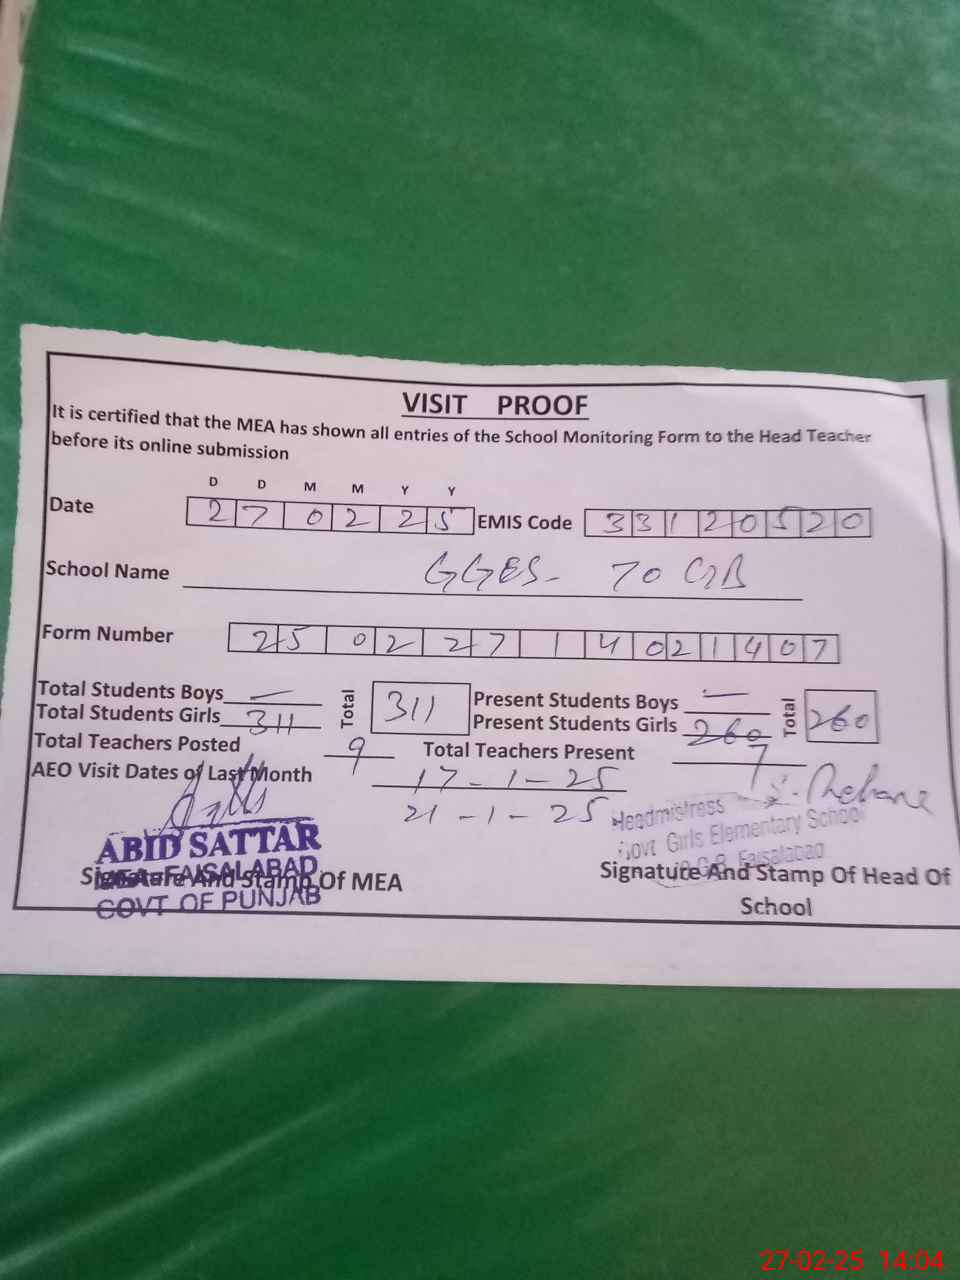 VISIT PROOF
It is certified that the MEA has shown all entries of the School Monitoring Form to the Head Teacher
before its online submission
D D M M Y Y
Date 2 7 0 2 2 5 EMIS Code 3 3 1 2 0 5 2 0
School Name GGES- 70 GB
Form Number 2 5 0 2 2 7 1 4 0 2 1 4 0 7
Total Students Boys — Total 311 Present Students Boys — Total 260
Total Students Girls 311 Present Students Girls 260
Total Teachers Posted 9 Total Teachers Present 7
AEO Visit Dates of Last Month 17-1-25
21-1-25
Headmistress
Govt Girls Elementary School
G.B. Faisalabad
ABID SATTAR
FAISALABAD
GOVT OF PUNJAB
Signature And Stamp Of MEA
Signature And Stamp Of Head Of
School
27-02-25 14:04